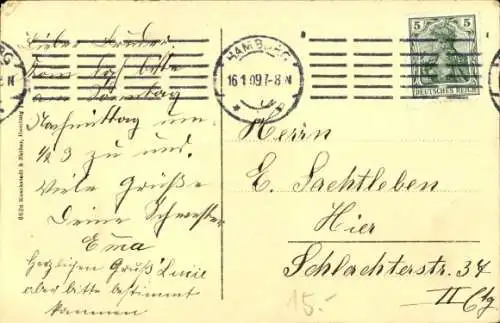 Lieber Bruder.
Kom bitte
am Sonntag
Nachmittag um
1/2 3 zu uns.
Viele Grüße
Deine Schwester
Emma
Herzlichen Gruß Lucie
aber bitte bestimmt
kommen
HAMBURG
16.1.09.7-8 N
5 5
DEUTSCHES REICH
Herrn
E. Sachtleben
Hier
Schlachterstr. 34
II Etg
15.-